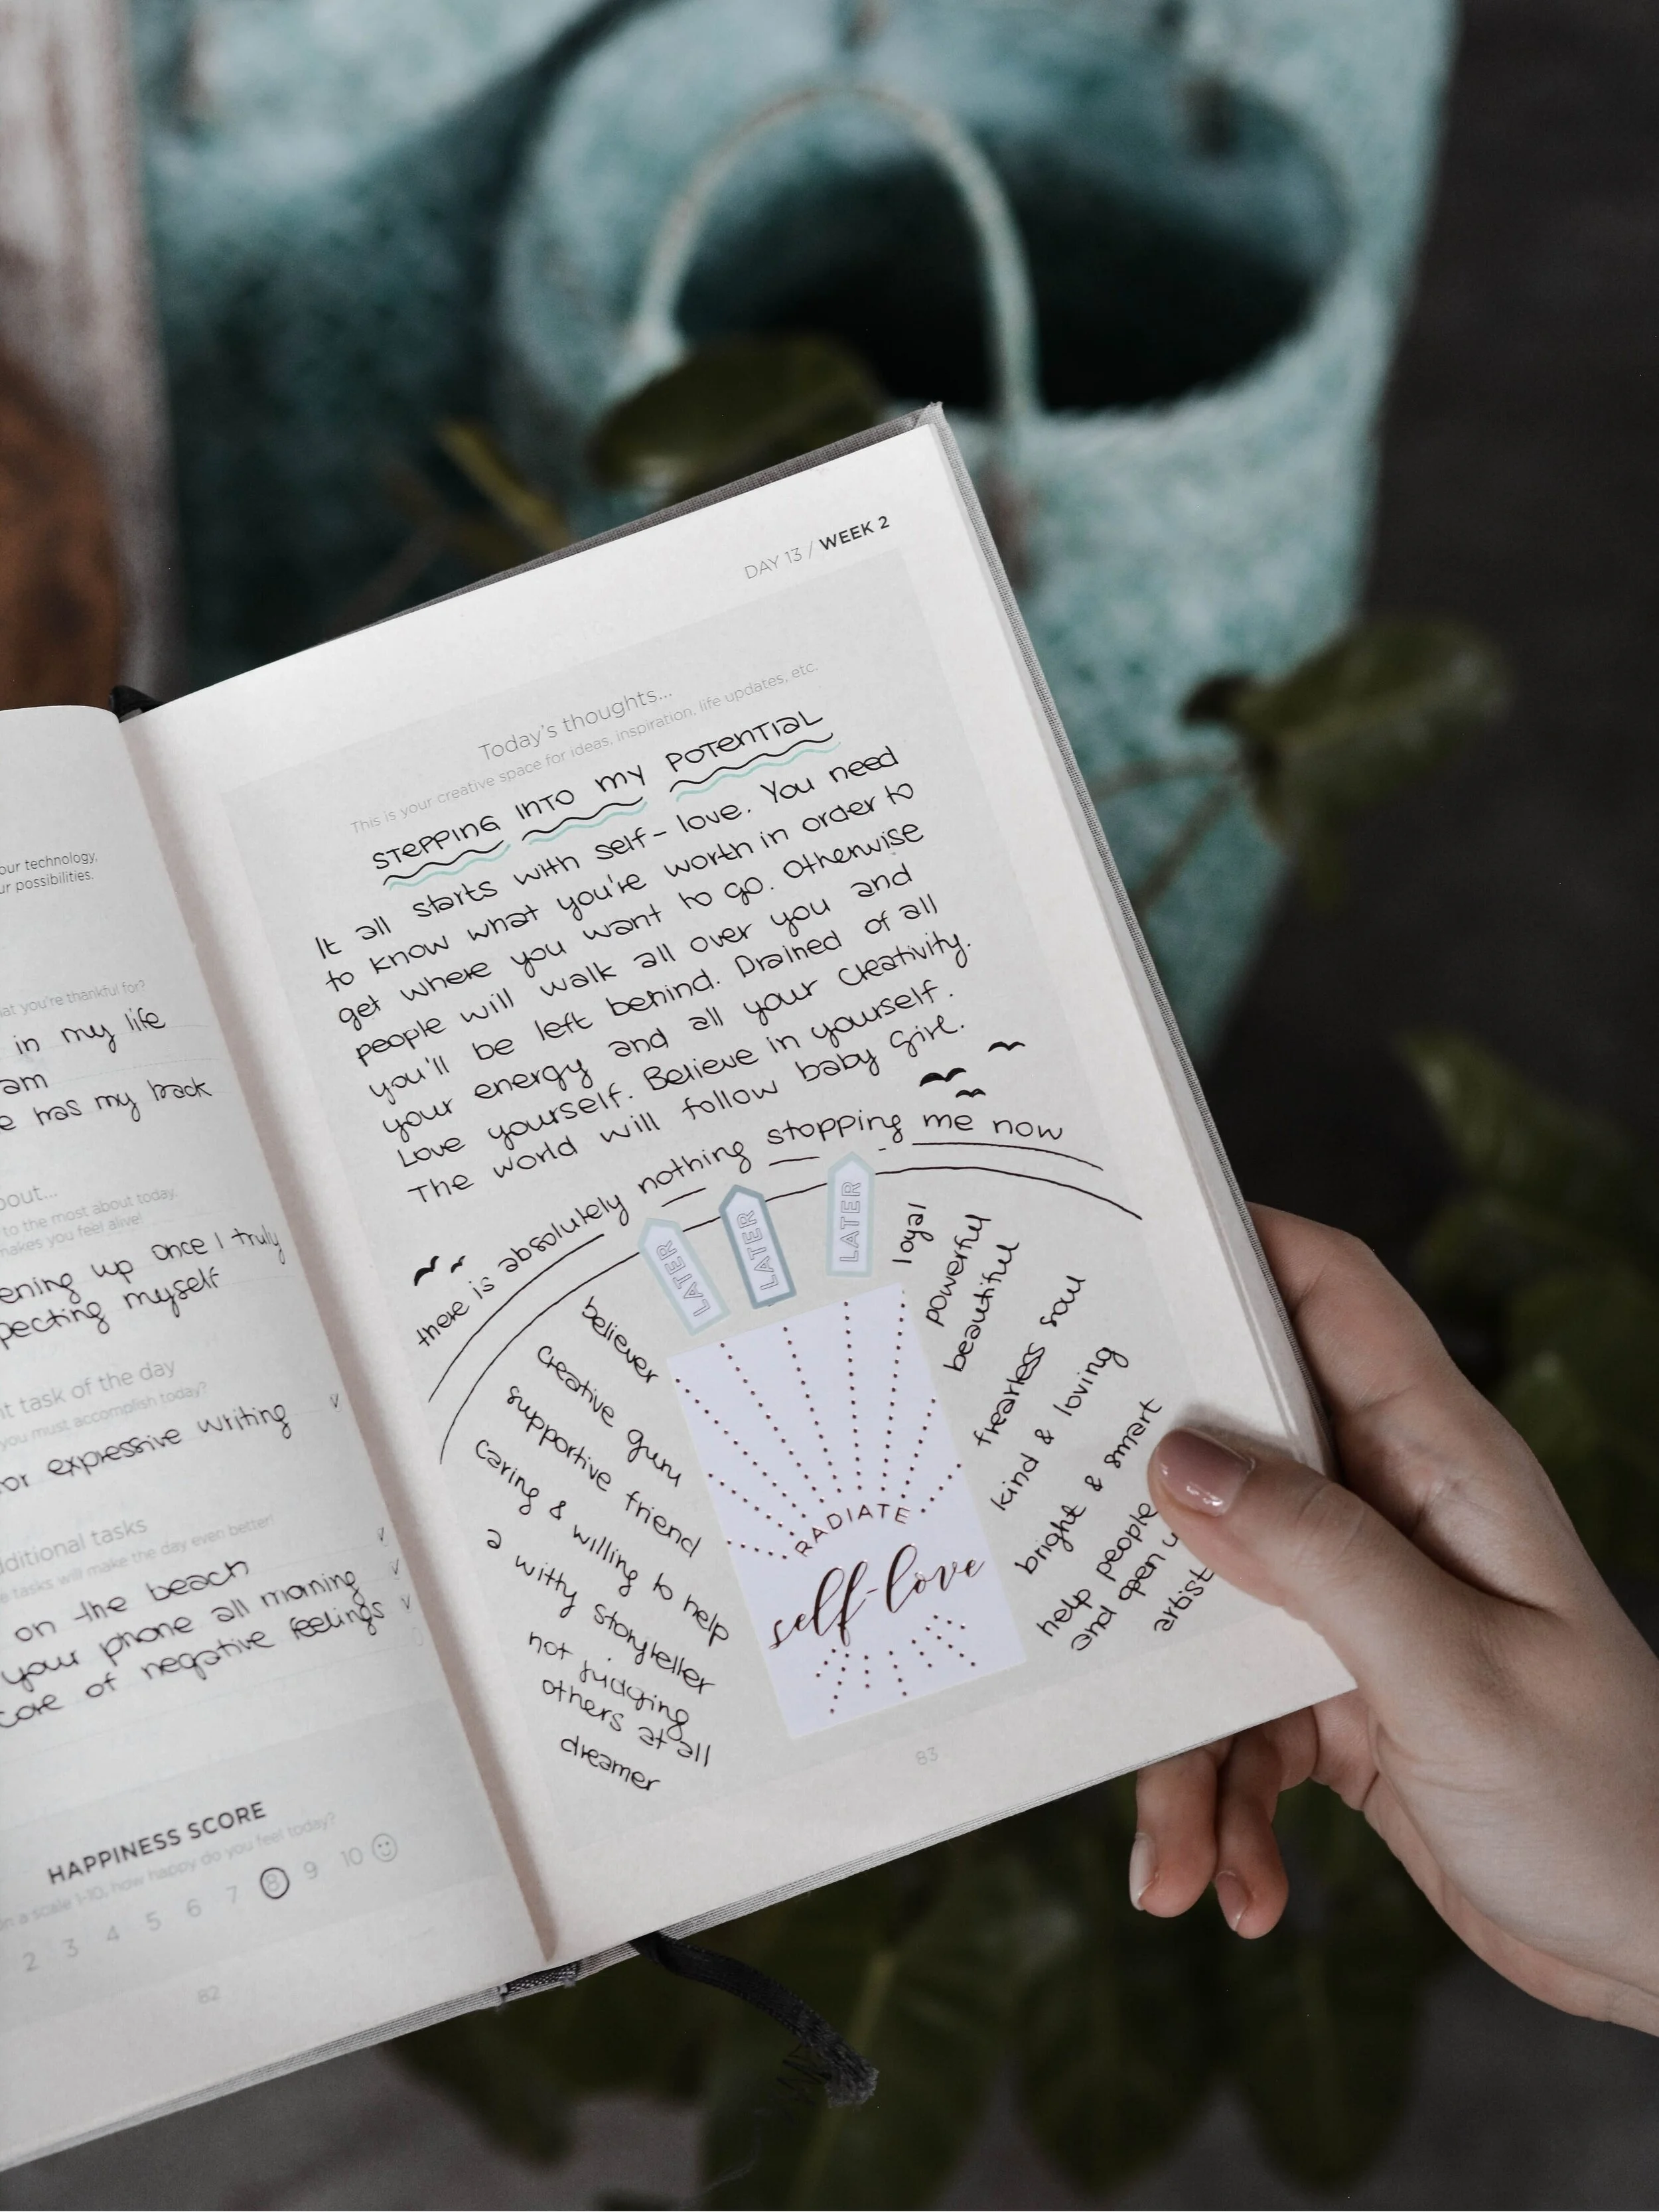 our technology,
ur possibilities.
at you're thankful for?
in my life
am
e has my back
out...
to the most about today,
makes you feel alive!
ening up once I truly
pecting myself
nt task of the day
you must accomplish today?
or expressive writing
dditional tasks
e tasks will make the day even better!
on the beach
your phone all morning
core of negative feelings
HAPPINESS SCORE
on a scale 1-10, how happy do you feel today?
2 3 4 5 6 7 8 9 10
82
DAY 13 / WEEK 2
Today's thoughts...
This is your creative space for ideas, inspiration, life updates, etc.
STEPPING INTO MY POTENTIAL
It all starts with self-love. You need
to know what you're worth in order to
get where you want to go. Otherwise
people will walk all over you and
you'll be left behind. Drained of all
your energy and all your creativity.
Love yourself. Believe in yourself.
The world will follow baby girl.
there is absolutely nothing stopping me now
LATER
LATER
LATER
believer
creative guru
supportive friend
caring & willing to help
a witty storyteller
not judging
others at all
dreamer
RADIATE
self-love
loyal
powerful
beautiful
fearless soul
kind & loving
bright & smart
help people
and open u
artist
83